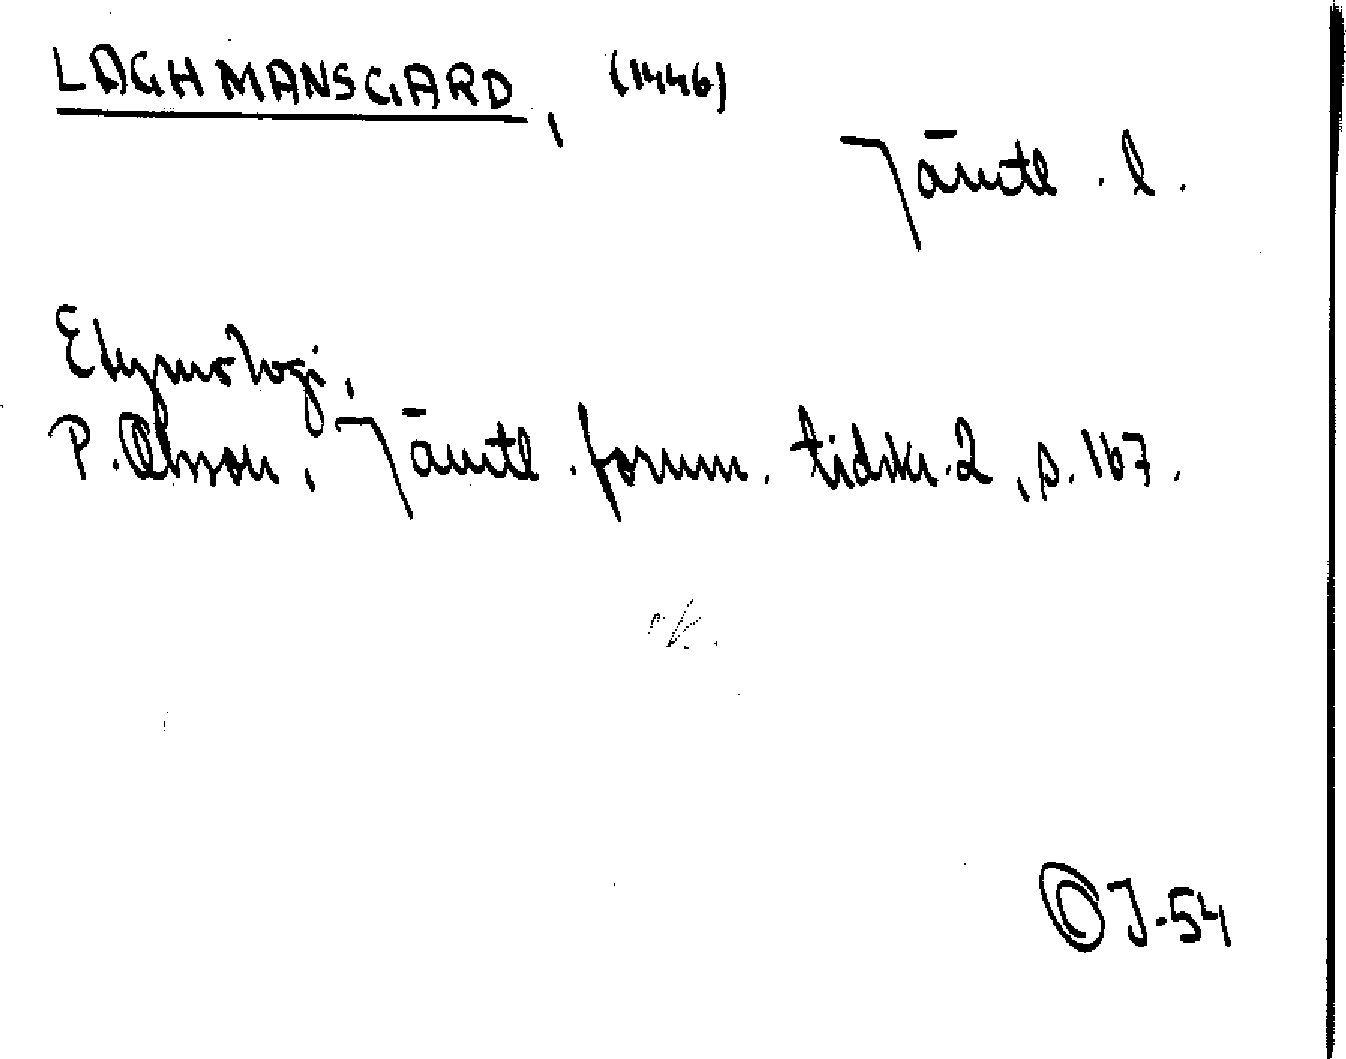 LAGHMANSGARD, (1446)
Jämtl. l.
Etymologi.
P. Olsson, Jämtl. forum. tidskr. 2, s. 167.
OJ-54